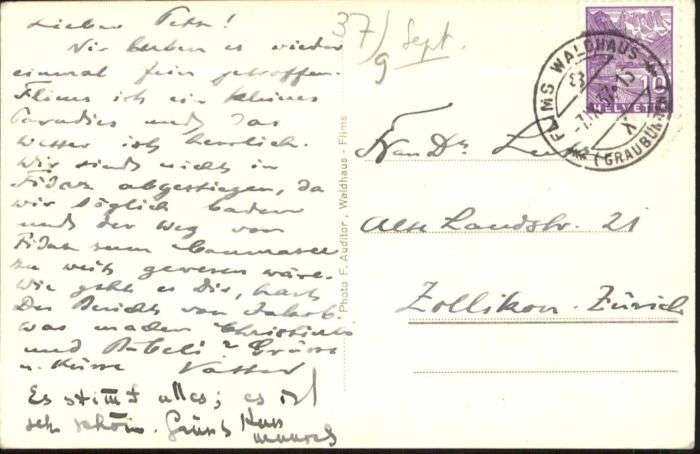 Lieber Petr!
Wir haben es wieder
einmal fein getroffen.
Flims ist ein kleines
Paradies und das
Wetter ist herrlich.
Wir sind nicht in
Fidaz abgestiegen, da
wir täglich baden
und der Weg von
Fidaz zum Caumasee
zu weit gewesen wäre.
Wie geht es Dir, hast
Du Bericht von Jakob.
Was machen
und Bäbeli? Grüsse
u. Küsse Vatter
Es stimmt alles; es ist
sehr schön. Gruss Kuss
37/9 Sept.
Photo F. Auditor, Waldhaus - Flims
HELVETIA
10
FLIMS WALDHAUS
(GRAUBÜNDEN)
Frau Dr.
Alte Landstr. 21
Zollikon-Zürich